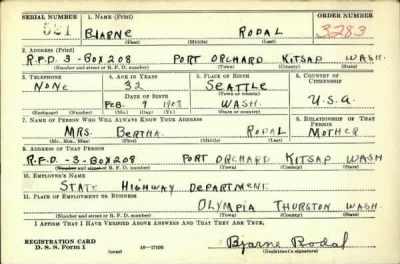 SERIAL NUMBER 1. NAME (Print) ORDER NUMBER
521 BJARNE RODAL 3283
(First) (Middle) (Last)
2. ADDRESS (Print)
R.F.D. 3 - BOX 208 PORT ORCHARD KITSAP WASH.
(Number and street or R. F. D. number) (Town) (County) (State)
3. TELEPHONE 4. AGE IN YEARS 5. PLACE OF BIRTH 6. COUNTRY OF CITIZENSHIP
NONE 32 SEATTLE
DATE OF BIRTH (Town or county)
FEB. 9 1908 WASH. U.S.A.
(Exchange) (Number) (Mo.) (Day) (Yr.) (State or country)
7. NAME OF PERSON WHO WILL ALWAYS KNOW YOUR ADDRESS 8. RELATIONSHIP OF THAT PERSON
MRS. BERTHA RODAL MOTHER
(Mr., Mrs., Miss) (First) (Middle) (Last)
9. ADDRESS OF THAT PERSON
R.F.D. - 3 - BOX 208 PORT ORCHARD KITSAP WASH
(Number and street or R. F. D. number) (Town) (County) (State)
10. EMPLOYER'S NAME
STATE HIGHWAY DEPARTMENT
11. PLACE OF EMPLOYMENT OR BUSINESS
OLYMPIA THURSTON WASH.
(Number and street or R. F. D. number) (Town) (County) (State)
I AFFIRM THAT I HAVE VERIFIED ABOVE ANSWERS AND THAT THEY ARE TRUE.
REGISTRATION CARD
D. S. S. Form 1 (over) 16-17105 Bjarne Rodal
(Registrant's signature)